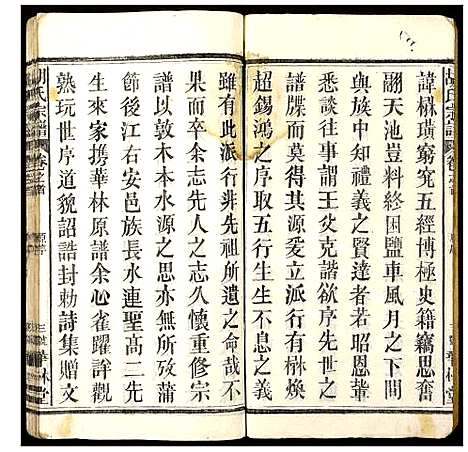 胡氏宗譜
卷之首
諱櫟璜窮究五經博極史籍竊思奮
翮天池豈料終困鹽車風月之下間
與族中知禮義之賢達者若昭恩輩
悉談往事謂王父克諧欲序先世之
譜牒而莫得其源爰立派行有楙煥
超錫鴻之序取五行生生不息之義
雖有此派行非先祖所遺之命哉不
果而卒余志先人之志久懷重修宗
譜以敦木本水源之思亦無所攷蒲
節後江右安邑族長水連聖高二先
生來家携華林原譜余心雀躍詳觀
熟玩世序道貌詔誥封勅詩集贈文
胡氏宗譜
卷之首
華林堂